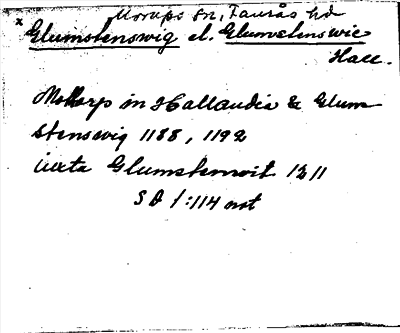 Morups sn, Faurås hd
x Glumstenswig el. Glumstenswic
Hall.
Mothorp in Hallandia & Glum
stenswig 1188, 1192
iuxta Glumstenwit 1211
SD 1:114 not